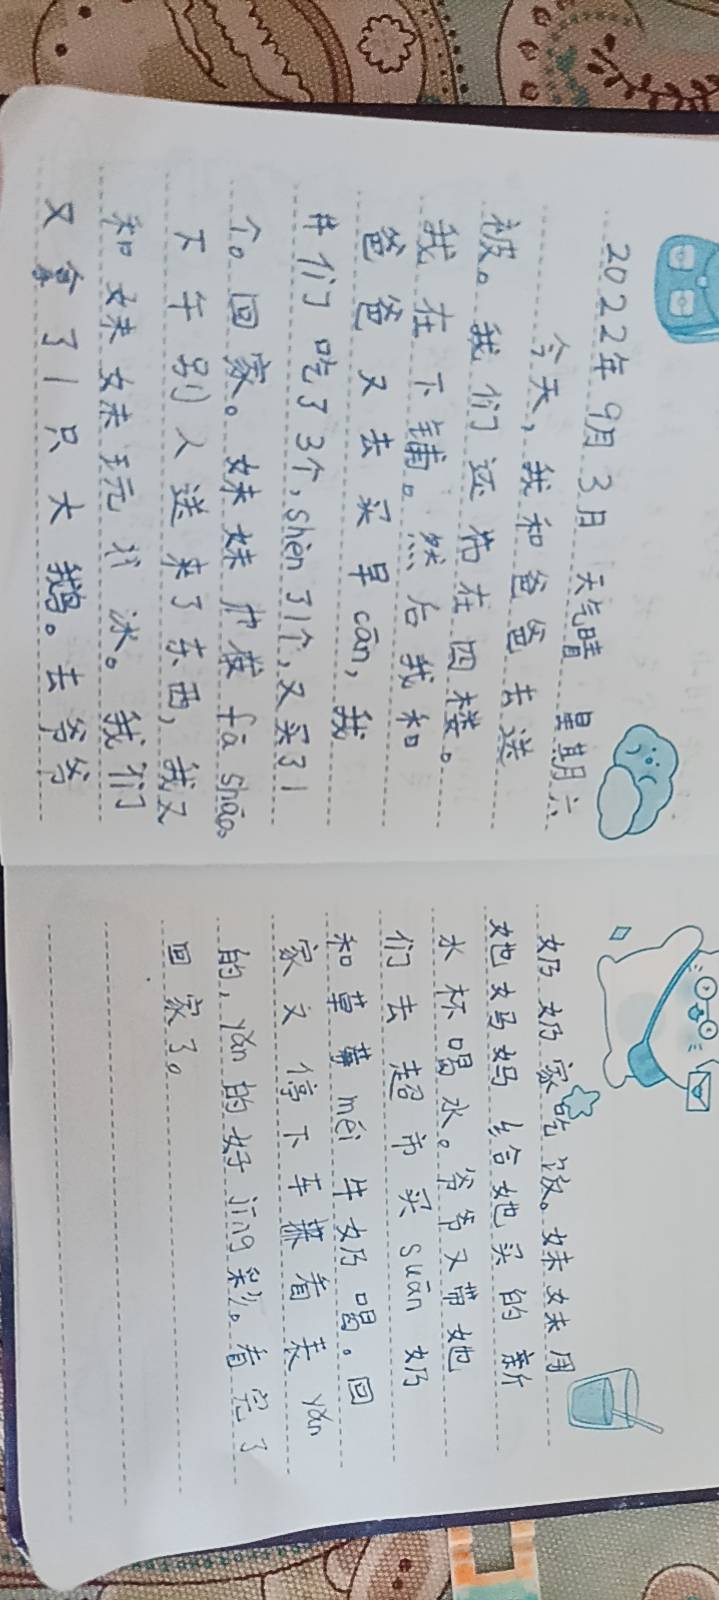 2022年9月3日 天气晴 星期六
今天,我和爸爸去送
被。我们还街在四楼。
我在下铺。然后我和
爸爸又去买早cān,我
们吃了3个,shèn了1个,又买了1
个。回家。妹妹fā shāo。
下午别人送来了东西,我又
和妹妹玩冰。我们
又拿了1只大鹅。去爷爷
奶奶家吃饭。妹妹用
她妈妈给她买的新
水杯喝水。爷爷又带她
们去超市买suān奶
和草莓méi牛奶喝。回
家又停下车看表yǎn
的,yǎn的好jīng彩。看完了
回家了。